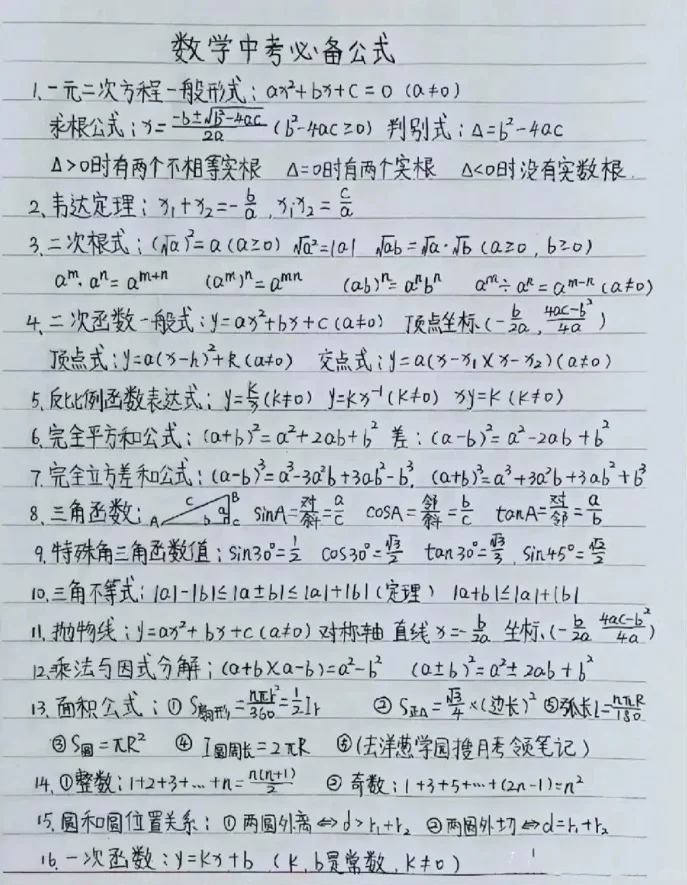 数学中考必备公式
1、一元二次方程一般形式：ax²+bx+c=0 (a≠0)
求根公式：x=\frac{-b±√(b²-4ac)}{2a} (b²-4ac≥0) 判别式：Δ=b²-4ac
Δ>0时有两个不相等实根 Δ=0时有两个实根 Δ<0时没有实数根.
2、韦达定理：x₁+x₂=-\frac{b}{a}, x₁·x₂=\frac{c}{a}
3、二次根式：(√a)²=a (a≥0) √a²=|a| √ab=√a·√b (a≥0, b≥0)
aᵐ·aⁿ=aᵐ⁺ⁿ (aᵐ)ⁿ=aᵐⁿ (ab)ⁿ=aⁿbⁿ aᵐ÷aⁿ=aᵐ⁻ⁿ (a≠0)
4、二次函数一般式：y=ax²+bx+c (a≠0) 顶点坐标(-\frac{b}{2a}, \frac{4ac-b²}{4a})
顶点式：y=a(x-h)²+k (a≠0) 交点式：y=a(x-x₁)(x-x₂) (a≠0)
5、反比例函数表达式：y=\frac{k}{x}(k≠0) y=kx⁻¹(k≠0) xy=k (k≠0)
6、完全平方和公式：(a+b)²=a²+2ab+b² 差：(a-b)²=a²-2ab+b²
7、完全立方差和公式：(a-b)³=a³-3a²b+3ab²-b³, (a+b)³=a³+3a²b+3ab²+b³
8、三角函数： A c B a b c sinA=\frac{对}{斜}=\frac{a}{c} cosA=\frac{邻}{斜}=\frac{b}{c} tanA=\frac{对}{邻}=\frac{a}{b}
9、特殊角三角函数值：sin30°=\frac{1}{2} cos30°=\frac{√3}{2} tan30°=\frac{√3}{3}, sin45°=\frac{√2}{2}
10、三角不等式：|a|-|b|≤|a±b|≤|a|+|b| (定理) |a+b|≤|a|+|b|
11、抛物线：y=ax²+bx+c (a≠0) 对称轴 直线x=-\frac{b}{2a} 坐标(-\frac{b}{2a} \frac{4ac-b²}{4a})
12、乘法与因式分解：(a+b)(a-b)=a²-b² (a±b)²=a²±2ab+b²
13、面积公式：① S扇形=\frac{nπr²}{360}=\frac{1}{2}lr ② S正Δ=\frac{√3}{4}×(边长)² ⑤弧长l=\frac{nπR}{180}
③ S圆=πR² ④ l圆周长=2πR ⑥(去洋葱学园搜月考领笔记)
14、①整数：1+2+3+…+n=\frac{n(n+1)}{2} ② 奇数：1+3+5+…+(2n-1)=n²
15、圆和圆位置关系：① 两圆外离⇔d>r₁+r₂ ②两圆外切⇔d=r₁+r₂
16、一次函数：y=kx+b (k,b是常数,k≠0)